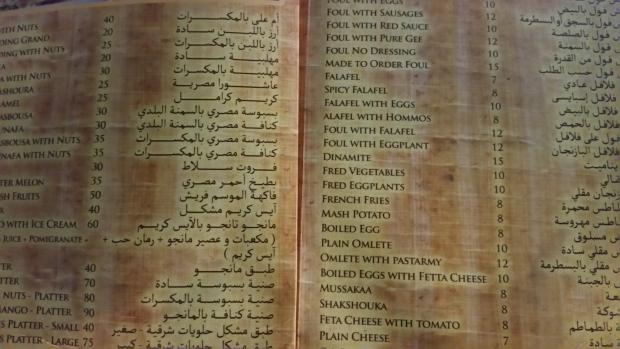 WITH NUTS 40 أم على بالمكسرات
DING GRAND 20 أرز باللبن سادة
DING WITH NUTS 30 أرز باللبن بالمكسرات
20 مهلبية سادة
A WITH NUTS 30 مهلبية بالمكسرات
ASHOURA 25 عاشورا مصرية
AMEL 25 كريم كرامل
ASBOUSA 30 بسبوسة مصري بالسمنة البلدي
UNAFA 30 كنافة مصري بالسمنة البلدي
ASBOUSA WITH NUTS 35 بسبوسة مصري بالمكسرات
UNAFA WITH NUTS 35 كنافة مصري بالمكسرات
30 فروت سلاط
TER MELON 35 بطيخ أحمر مصري
SH FRUITS 50 فاكهة الموسم فريش
40 آيس كريم مشكل
O WITH ICE CREAM 60 مانجو تانجو بالآيس كريم
JUICE + POMIGRANATE + ( مكعبات و عصير مانجو + رمان حب +
آيس كريم )
TER 40 طبق مانجو
TTER 70 صنية بسبوسة سادة
NUTS - PLATTER 80 صنية بسبوسة بالمكسرات
MANGO - PLATTER 90 صنية كنافة بالمانجو
TS PLATTER - SMALL 40 طبق مشكل حلويات شرقية - صغير
TS PLATTER - LARGE 75 طبق مشكل حلويات شرقية - كبير
FOUL WITH EGGS 10 فول بالبيض
FOUL WITH SAUSAGES 12 فول بالسجق أو البسطرمة
FOUL WITH RED SAUCE 10 فول بالصلصة
FOUL WITH PURE GEF 12 فول بالسمنة
FOUL NO DRESSING 10 فول من القدرة
MADE TO ORDER FOUL 15 فول حسب الطلب
FALAFEL 7 فلافل عادي
SPICY FALAFEL 8 فلافل إسبايسى
FALAFEL WITH EGGS 10 فلافل بالبيض
ALAFEL WITH HOMMOS 8 فلافل بالحمص
FOUL WITH FALAFEL 12 فول على فلافل
FOUL WITH EGGPLANT 12 فول البازنجان
DINAMITE 15
FRED VEGETABLES 10
FRED EGGPLANTS 10 نجان مقلي
FRENCH FRIES 8 محمرة
MASH POTATO 8 مهروسة
BOILED EGG 8 مسلوق
PLAIN OMLETE 10 مقلي سادة
OMLETE WITH PASTARMY 12 مقلي بالبسطرمة
BOILED EGGS WITH FETTA CHEESE 10 بالجبنة
MUSSAKAA 8
SHAKSHOUKA 8
FETA CHEESE WITH TOMATO 8 بالطماطم
PLAIN CHEESE 7 سادة